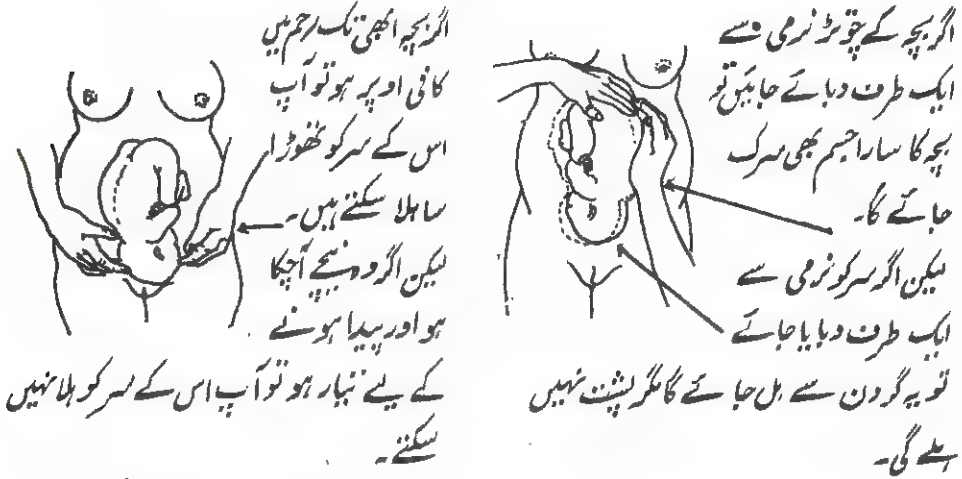 اگر بچہ کے چوتڑ نرمی سے
ایک طرف دبائے جائیں تو
بچہ کا سارا جسم بھی سرک
جائے گا۔
لیکن اگر سر کو نرمی سے
ایک طرف دبایا جائے
تو یہ گردن سے ہل جائے گا مگر پشت نہیں
ہلے گی۔
اگر بچہ ابھی تک رحم میں
کافی اوپر ہو تو آپ
اس کے سر کو تھوڑا
سا ہلا سکتے ہیں۔
لیکن اگر وہ نیچے آچکا
ہو اور پیدا ہونے
کے لیے تیار ہو تو آپ اس کے سر کو ہلا نہیں
سکتے۔